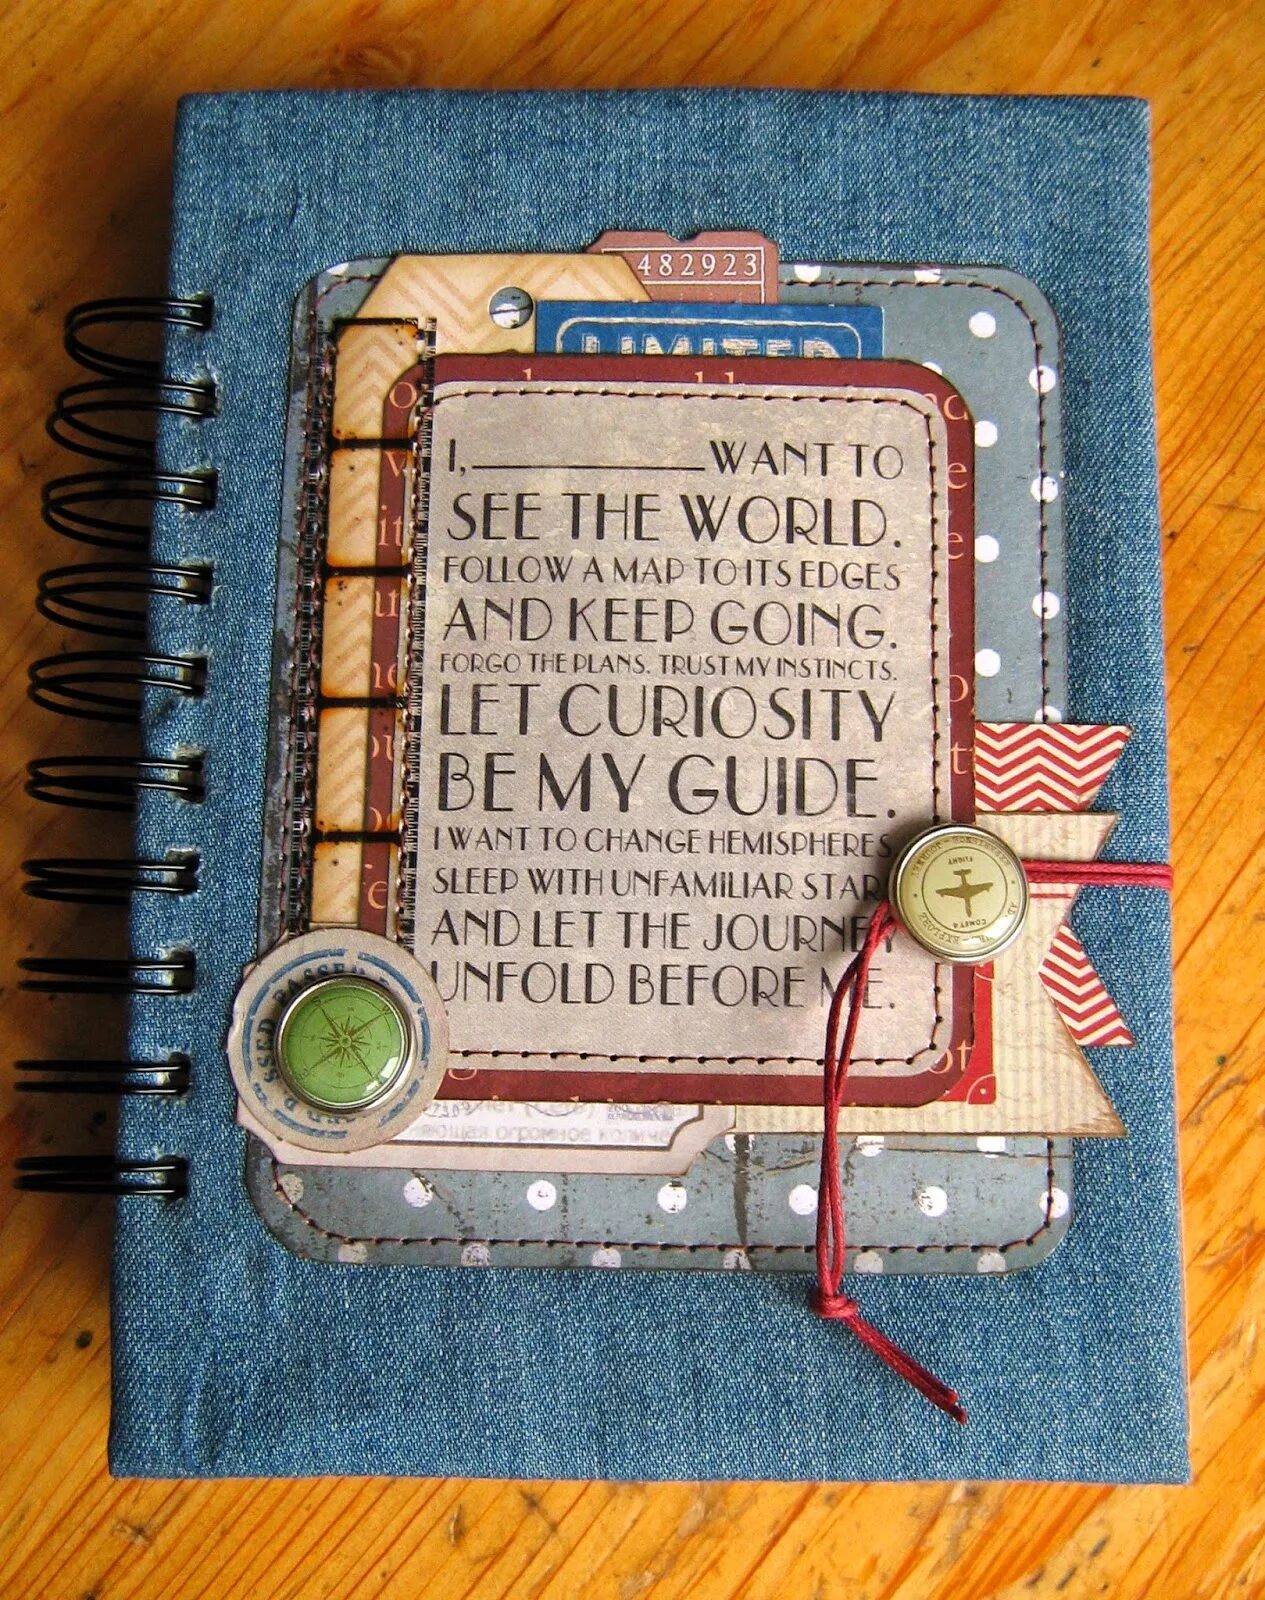 482923
LIMITED
I, WANT TO
SEE THE WORLD.
FOLLOW A MAP TO ITS EDGES
AND KEEP GOING.
FORGO THE PLANS. TRUST MY INSTINCTS.
LET CURIOSITY
BE MY GUIDE.
I WANT TO CHANGE HEMISPHERES
SLEEP WITH UNFAMILIAR STAR
AND LET THE JOURNEY
UNFOLD BEFORE ME.
FLIGHT
COMET 4
PASSED
огромное